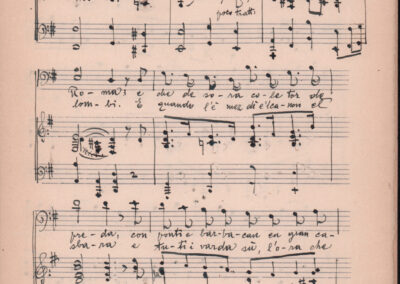 poco tratt.
Ro-ma i e che de so-ra co-le tor de
lom-bi. E quando l'è mez di e'l ca-non el
pre-da, con ponti e bar-ba-can en gran ca-
sba-ra e tu-ti i varda sù, l'o-ra che